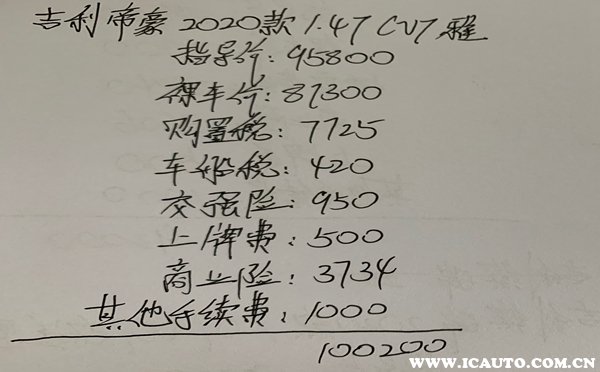 吉利帝豪 2020款 1.4T CVT 雅
指导价: 95800
裸车价: 87300
购置税: 7725
车船税: 420
交强险: 950
上牌费: 500
商业险: 3734
其他手续费: 1000
100200
WWW.ICAUTO.COM.CN